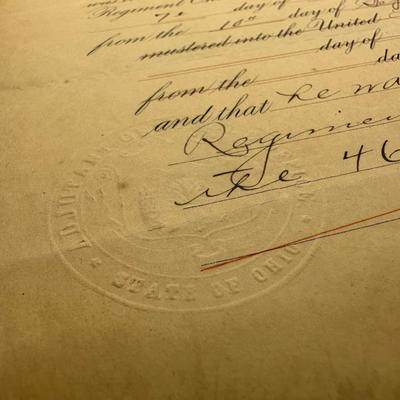 Regiment
from the 10th day of
mustered into the United
day of
from the
and that he wa
Regimen
the 46
ADJUTA
STATE OF OHIO